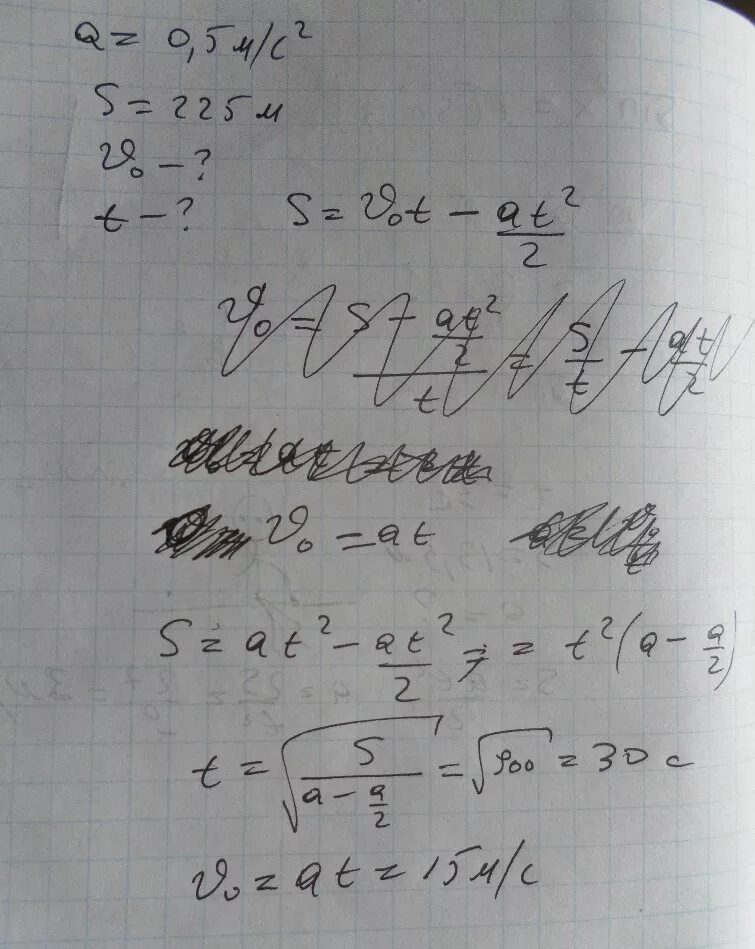 a = 0,5 м/с²
S = 225 м
v₀ - ?
t - ?
S = v₀t - at²/2
v₀ = (S + at²/2)/t = S/t - at/2
v₀ = at
S = at² - at²/2 = = t²(a - a/2)
t = √(S/(a - a/2)) = √900 = 30 с
v₀ = at = 15 м/с